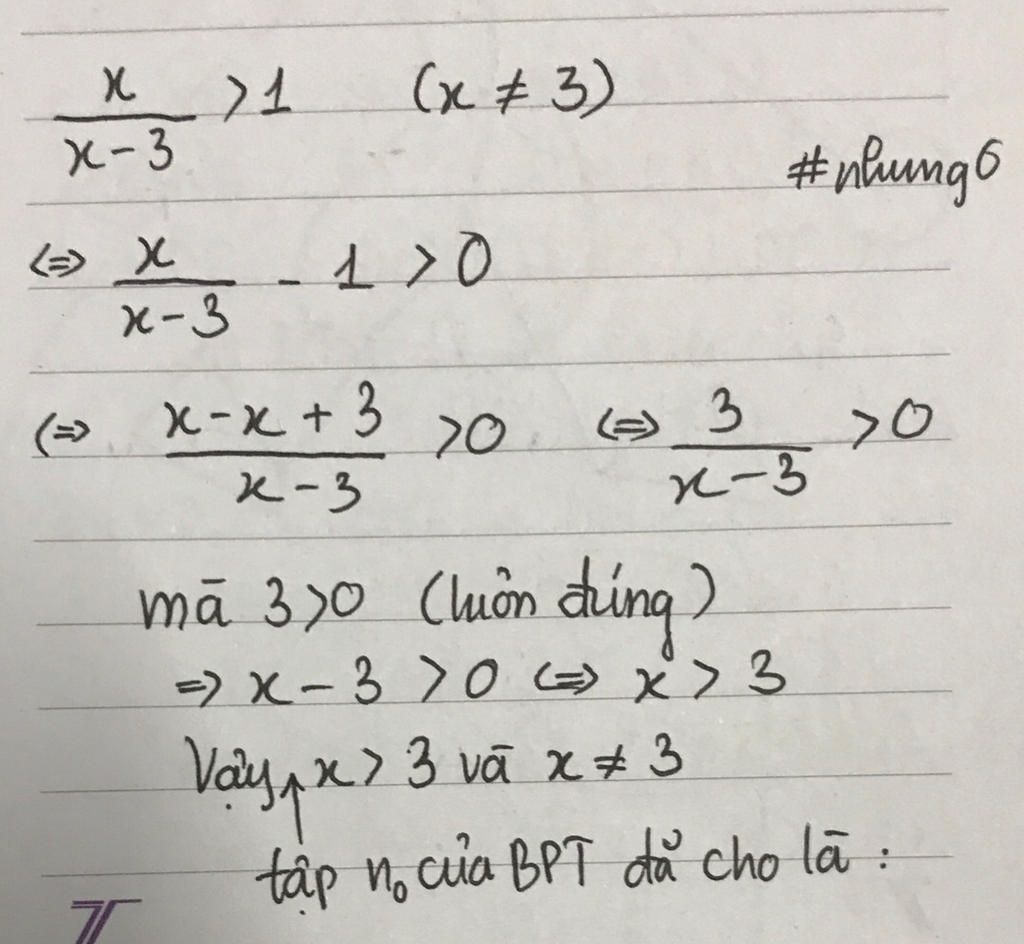 x/(x-3) > 1 (x ≠ 3)
#nhung6
<=> x/(x-3) - 1 > 0
<=> (x-x+3)/(x-3) > 0 <=> 3/(x-3) > 0
mà 3>0 (luôn đúng)
=> x-3 > 0 <=> x > 3
Vậy x > 3 và x ≠ 3
tập n₀ của BPT đã cho là :